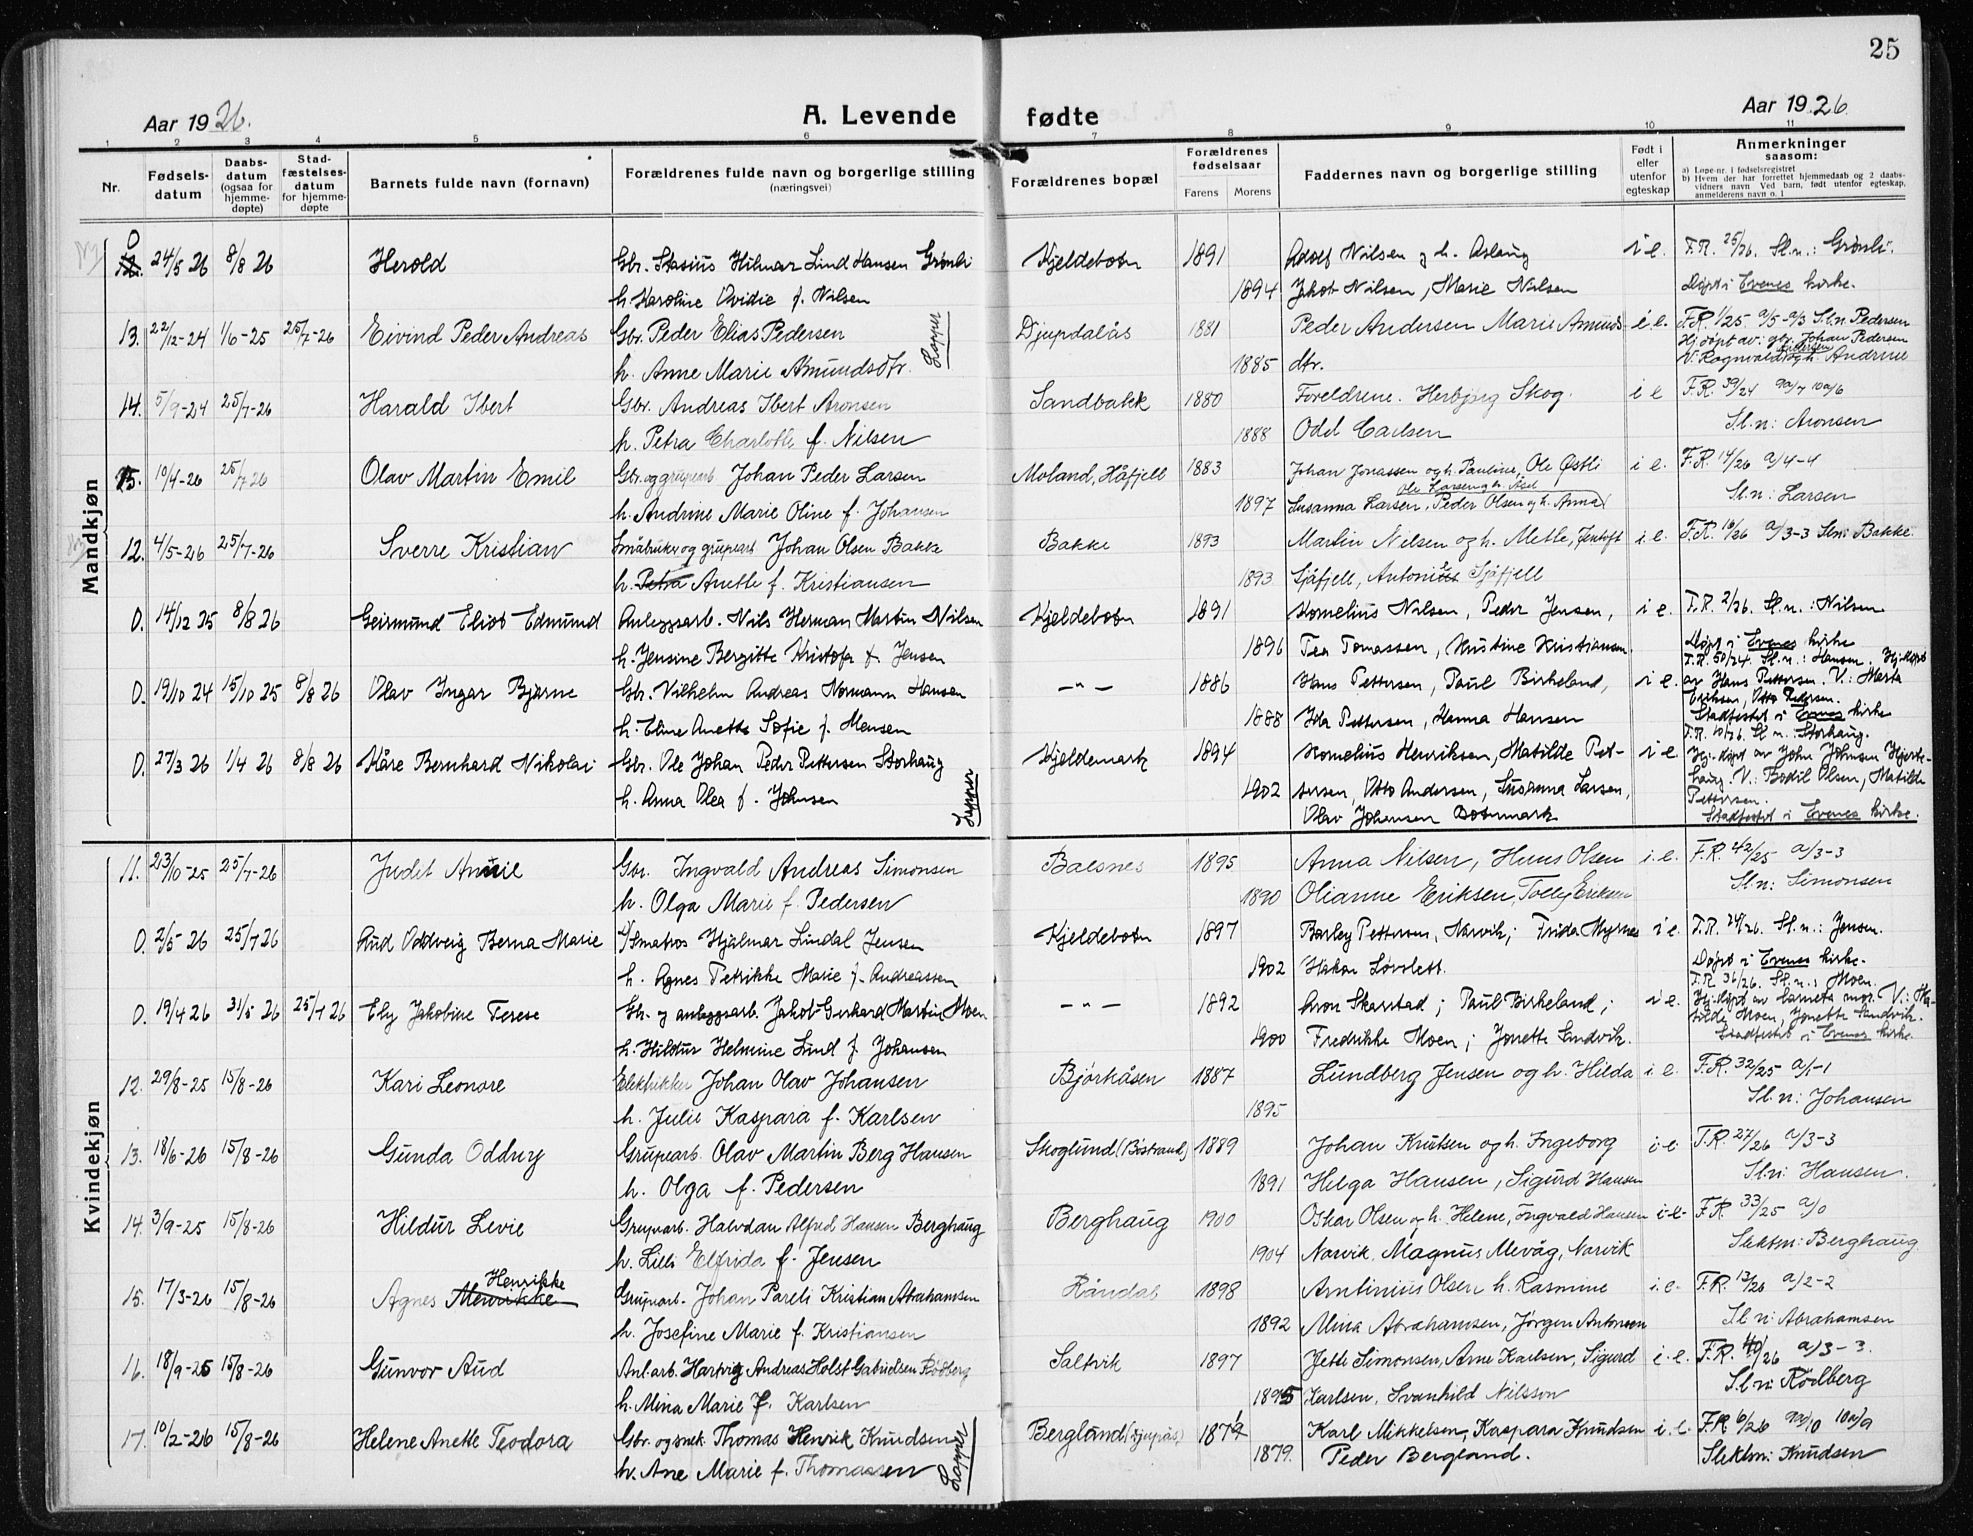 25
Aar 1926.
A. Levende fødte
Aar 1926
1 2 3 4 5 6 7 8 9 10 11
Nr.
Fødsels-datum
Daabs-datum (ogsaa for hjemme-døpte)
Stad-fæstelses-datum for hjemme-døpte
Barnets fulde navn (fornavn)
Forældrenes fulde navn og borgerlige stilling (næringsvei)
Forældrenes bopæl
Forældrenes fødselsaar
Farens Morens
Faddernes navn og borgerlige stilling
Født i eller utenfor egteskap
Anmerkninger saasom:
a) Løpe-nr. i fødselsregistret
b) Hvem der har forrettet hjemmedaab og 2 daabs-vidners navn Ved barn, født utenfor egteskap, anmelderens navn o. l
Mandkjøn
0 24/5 26 8/8 26 Herold Gbr. Stasius Hilmar Lind Hansen Grønli Kjeldebotn 1891 Adolf Nilsen og h. Aslaug i e. F.R. 25/26. Sl.n.: Grønli.
h. Karoline Ovidie f. Nilsen 1894 Jakob Nilsen, Marie Nilsen Døpt i Evenes kirke.
13. 22/12-24 1/6-25 25/7-26 Eivind Peder Andreas Gbr. Peder Elias Pedersen Lapper Djupdalås 1881 Peder Andersen Marie Amunds i e. F.R. 1/25 a/5-a/3 Sl.n. Pedersen
Hj.døpt av: gbr. Johan Pedersen
h. Anne Marie Amundsdtr. 1885 dtr. V: Ragnvald og h. Andrine
14. 5/9-24 25/7-26 Harald Ibert Gbr. Andreas Ibert Aronsen Sandbakk 1880 Foreldrene. Herbjørg Skog. i e F.R. 39/24 9a/7 10a/6
h. Petra Charlotte f. Nilsen 1888 Odd Carlsen Sl.n: Aronsen
15. 10/4-26 25/7 26 Olav Martin Emil Gbr. og grupearb Johan Peder Larsen Moland, Håfjell 1883 Johan Jonassen og h. Pauline, Ole Østli i e. F.R. 14/26 a/4-4
h. Andrine Marie Oline f. Johansen 1897 Susanna Larsen, Peder Olsen og h. Anna Sl.n: Larsen
12. 4/5-26 25/7-26 Sverre Kristian Småbruker og grupearb Johan Olsen Bakke Bakke 1893 Martin Nilsen og h. Mette, Jentoft i e. F.R. 16/26 a/3-3 Sl.n: Bakke.
h. Petra Anette f. Kristiansen 1893 Sjåfjell, Antonie Sjåfjell
0. 14/12 25 8/8 26 Geirmund Eliot Edmund Anleggsarb. Nils Herman Martin Nilsen Kjeldebotn 1891 Kornelius Nilsen, Peder Jensen, i e. F.R. 2/26. Sl.n.: Nilsen.
h. Jensine Bergitte Kristofa f. Jensen 1896 Tea Tomassen, Kristine Kristiansen. Døpt i Evenes kirke
0. 19/10 24 15/10 25 8/8 26 Olav Ingar Bjarne Gbr. Vilhelm Andreas Normann Hansen -"- 1886 Hans Pettersen, Paul Birkeland, i e. F.R. 50/24. Sl.n.: Hansen. Hj.døpt
av Hans Pettersen. V.: Marta
Eriksen, Otto Pedersen.
h. Eline Anette Sofie f. Hansen 1888 Ida Pettersen, Hanna Hansen Stadfestet i Evenes kirke
0. 27/3 26 1/4 26 8/8 26 Kåre Bernhard Nikolai Gbr. Ole Johan Peder Pettersen Storhaug Lapper Kjeldemark 1894 Kornelius Henriksen, Matilde Pet- i e. F.R. 10/26. Sl.n.: Storhaug.
Hj.-døpt av John Johnsen Hjerte-
haug. V.: Bodil Olsen, Matilde
h. Anna Olea f. Johnsen 1902 tersen, Otto Andersen, Susanna Larsen, Pettersen.
Olav Johansen Botnmark Stadfestet i Evenes kirke.
Kvindekjøn
11. 23/10-25 25/7-26 Judit Amilie Gbr. Ingvald Andreas Simonsen Balsnes 1895 Anna Nilsen, Hans Olsen i e. F.R. 42/25 a/3-3
h. Olga Marie f. Pedersen 1890 Olianne Eriksen, Tolley Eriksen Sl.n: Simonsen
0. 2/5 26 25/7 26 Aud Oddveig Berna Marie Matros Hjalmar Lindal Jensen Kjeldebotn 1897 Barley Pettersen, Narvik; Frida Myrnes i e. F.R. 24/26. Sl.n.: Jensen.
h. Agnes Petrikke Marie f. Andreassen 1902 Håkon Løvslett. Døpt i Evenes kirke.
0. 19/4 26 31/5 26 25/7 26 Ely Jakobine Terese Gbr. og anleggsarb. Jakob Gerhard Martin Moen -"- 1892 Aron Skarstad; Paul Birkeland; i e. F.R. 36/26. Sl.n.: Moen.
Hj.døpt av barnets mor. V.: Ma-
tilde Moen, Jonette Sandvik.
h. Hildur Helmine Lind f. Johansen 1900 Fredrikke Moen; Jonette Sandvik. Stadfestet i Evenes kirke.
12. 29/8-25 15/8-26 Kari Leonore Elektriker Johan Olav Johansen Bjørkåsen 1887 Lundberg Jensen og h. Hilda i e. F.R. 32/25 a/1-1
h. Julie Kaspara f. Karlsen 1895 Sl.n: Johansen
13. 18/6-26 15/8-26 Gunda Oddny Grupearb. Olav Martin Berg Hansen Skoglund (Bøstrand) 1889 Johan Knutsen og h. Ingeborg i e F.R. 27/26 a/3-3
h. Olga f. Pedersen 1891 Helga Hansen, Sigurd Hansen Sl.n: Hansen.
14. 3/9-25 15/8-26 Hildur Levie Grupearb. Halvdan Alfred Hansen Berghaug Berghaug 1900 Oskar Olsen og h. Helene, Ingvald Hansen i e F.R. 33/25 a/0
h. Lilli Elfrida f. Jensen 1904 Narvik, Magnus Alevåg, Narvik Slektsn: Berghaug
15. 17/3-26 15/8-26 Agnes Henrikke Grupearb. Johan Pareli Kristian Abrahamsen Råndal 1898 Antinius Olsen h. Rasmine i e. F.R. 13/26 a/2-2
h. Josefine Marie f. Kristiansen 1892 Mina Abrahamsen, Jørgen Antonsen Sl.n: Abrahamsen
16. 18/9-25 15/8-26 Gunvor Aud Anl.arb. Hartvig Andreas Holst Gabrielsen Rødberg Saltvik 1897 Jette Simonsen, Arne Karlsen, Sigurd i e. F.R. 40/26 a/3-3.
h. Mina Marie f. Karlsen 1895 Karlsen, Svanhild Nilsson Sl.n: Rödberg
17. 10/2-26 15/8-26 Helene Anette Teodora Gbr. og snek. Thomas Henrik Knudsen Lapper Bergland (Djupås) 1871 Karl Mikkelsen, Kaspara Knudsen i e. F.R 6/26 9a/10 10a/9
h. Ane Marie f. Thomassen 1879. Peder Bergland. Slektsn: Knudsen